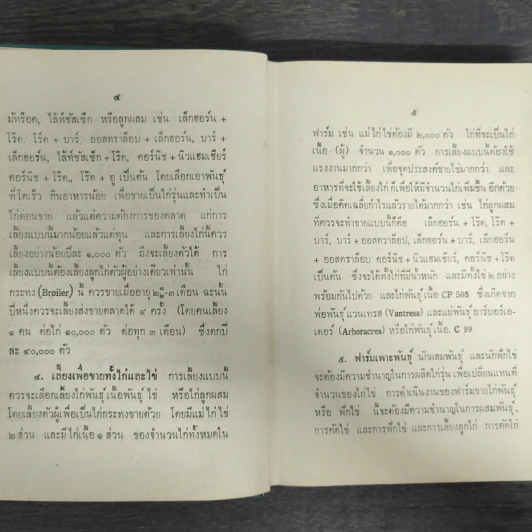 ๔
มัทร็อค, ไล้ท์ซัสเซ็ก หรือลูกผสม เช่น เล็กฮอร์น +
โร๊ต. โร๊ต + บาร์, ออสตราล็อบ + เล็กฮอร์น, บาร์ +
เล็กฮอร์น, ไล้ท์ซัสเซ็ก + โร๊ต, คอร์นิช + นิวแฮมเชียร์
คอร์นิช + โร๊ต,, โร๊ต + อู เป็นต้น โดยเลือกเอาพันธุ์
ที่โตเร็ว กินอาหารน้อย เพื่อขายเป็นไก่รุ่นและทำเป็น
ไก่ตอนขาย แล้วแต่ความต้องการของตลาด แก่การ
เลี้ยงแบบนี้มากน้อยแล้วแต่ทุน และการเลี้ยงไก่นี้ควร
เลี้ยงอย่างน้อยปีละ ๑,๐๐๐ ตัว ถึงจะเลี้ยงตัวได้ การ
เลี้ยงแบบนี้ต้องเลี้ยงลูกไก่ตัวผู้อย่างเดียวเท่านั้น ไก่
กระทง (Broiler) นี้ ควรขายเมื่ออายุ ๒½-๓ เดือน ฉะนั้น
ปีหนึ่งควรจะเลี้ยงส่งขายตลาดได้ ๔ ครั้ง (โดยคนเลี้ยง
๑ คน ต่อไก่ ๑๐,๐๐๐ ตัว ต่อทุก ๓ เดือน) ซึ่งตกปี
ละ ๔๐,๐๐๐ ตัว
๔. เลี้ยงเพื่อขายทั้งไก่และไข่ การเลี้ยงแบบนี้
ควรจะเลือกเลี้ยงไก่พันธุ์เนื้อพันธุ์ ไข่ หรือไก่ลูกผสม
โดยเลี้ยงตัวผู้เพื่อเป็นไก่กระทงขายด้วย โดยมีแม่ไก่ไข่
๒ ส่วน และมีไก่เนื้อ ๑ ส่วน ของจำนวนไก่ทั้งหมดใน
๕
ฟาร์ม เช่น แม่ไก่ไข่ต้องมี ๒,๐๐๐ ตัว ไก่ที่จะเป็นไก่
เนื้อ (ผู้) จำนวน ๑,๐๐๐ ตัว การเลี้ยงแบบนี้ต้องใช้
แรงงานมากกว่า เพื่อจุดประสงค์ขายไข่มากกว่า และ
อาหารที่จะใช้เลี้ยงไก่ก็เพื่อให้มีจำนวนไก่เพิ่มขึ้น อีกด้วย
ซึ่งเมื่อคิดเฉลี่ยกำไรแล้วรายได้มากกว่า เช่น ไก่ลูกผสม
ที่ควรจะทำขายแบบนี้ก็คือ เล็กฮอร์น + โร๊ต, โร๊ต +
บาร์, บาร์ + ออสตราล้อบ, บาร์ + เล็กฮอร์น, บาร์ +
ออสตราล้อบ, คอร์นิช + นิวแฮมเชียร์, คอร์นิช + โร๊ต
เป็นต้น ซึ่งจะได้ทั้งไก่ที่มีน้ำหนัก และมีทั้งไข่ ๒ อย่าง
พร้อมกันไปด้วย และไก่พันธุ์เนื้อ CP 505 ซึ่งเกิดจาก
พ่อพันธุ์แวนเทรส (Vantress) และแม่พันธุ์อาร์บอร์เอ-
เคอร์ (Arboracres) หรือไก่พันธุ์เนื้อ. C 99
๕. ฟาร์มเพาะพันธุ์ นักผสมพันธุ์ และนักฟักไข่
จะต้องมีความชำนาญในการผลิตไก่รุ่น เพื่อเปลี่ยนแทนที่
จำนวนของไก่ไข่ การดำเนินงานของฟาร์มขายไก่พันธุ์
หรือ ฟักไข่ นี้จะต้องมีความชำนาญในการผสมพันธุ์,
การคัดไข่ และการฟักไข่ และการเลี้ยงลูกไก่ การคัดไก่